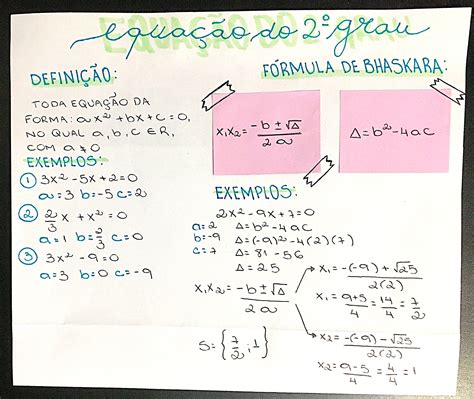 equação do 2º grau
DEFINIÇÃO:
TODA EQUAÇÃO DA
FORMA: ax² + bx + c = 0,
NO QUAL a, b, c ∈ R,
COM a ≠ 0
EXEMPLOS:
① 3x² - 5x + 2 = 0
a = 3 b = -5 c = 2
② 2/3 x + x² = 0
a = 1 b = 2/3 c = 0
③ 3x² - 9 = 0
a = 3 b = 0 c = -9
FÓRMULA DE BHASKARA:
x₁x₂ = -b ± √Δ / 2a
Δ = b² - 4ac
EXEMPLOS:
2x² - 9x + 7 = 0
a = 2 Δ = b² - 4ac
b = -9 Δ = (-9)² - 4(2)(7)
c = 7 Δ = 81 - 56
Δ = 25
x₁x₂ = -b ± √Δ / 2a
x₁ = -(-9) + √25 / 2(2)
x₁ = 9+5 / 4 = 14/4 = 7/2
x₂ = -(-9) - √25 / 2(2)
x₂ = 9-5 / 4 = 4/4 = 1
S = {7/2 ; 1}